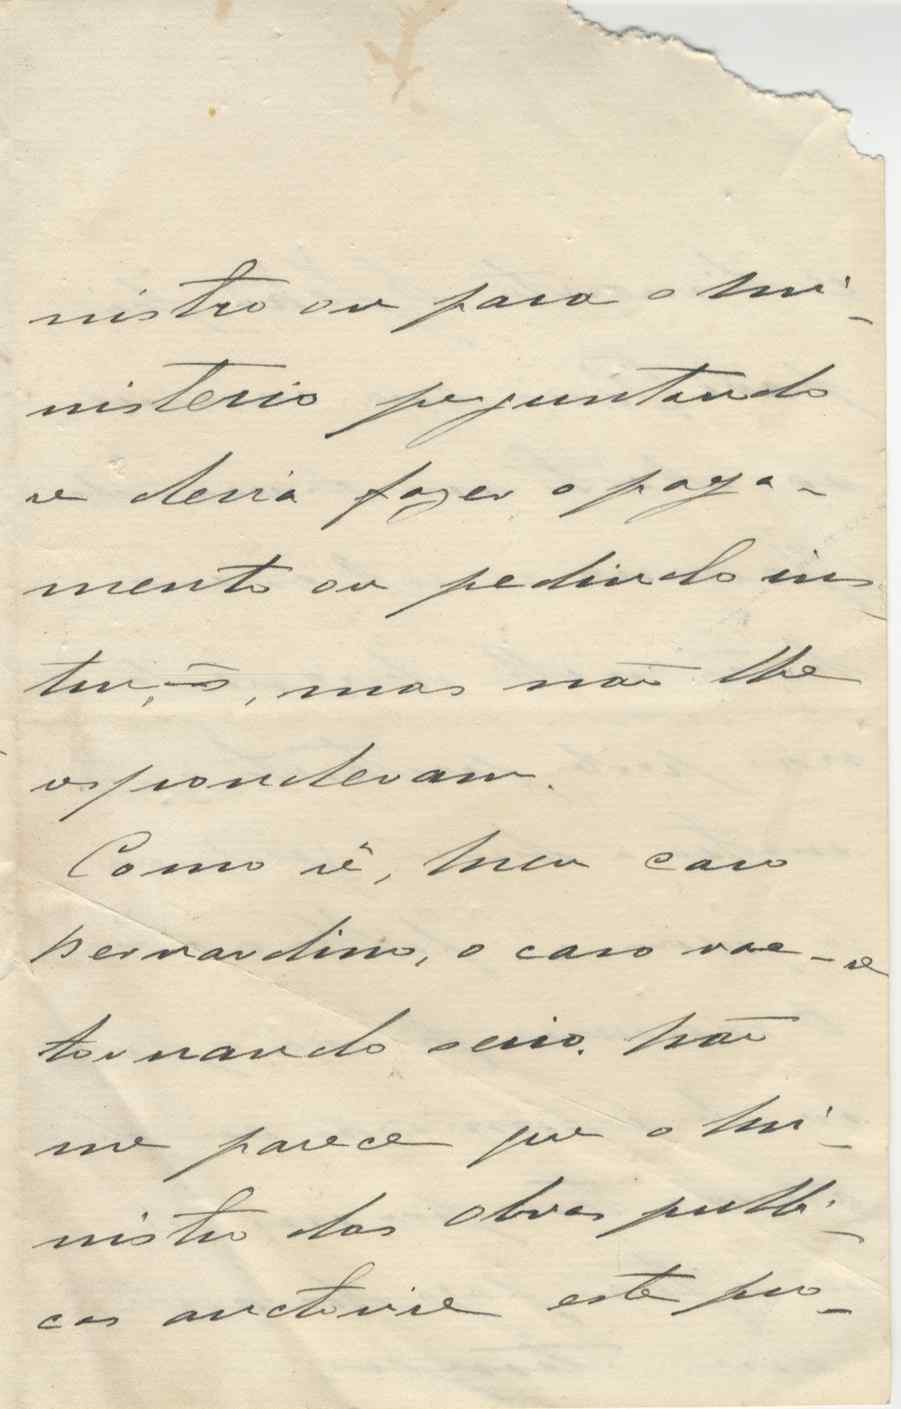 nistro ou para o Mi-
nisterio perguntando
se devia fazer o paga-
mento ou pedindo ins
trucções, mas não lhe
responderam.
Como vê, meu caro
Bernardino, o caso vae-se
tornando serio. Não
me parece que o Mi-
nistro das Obras publi-
cas auctorise este pro-